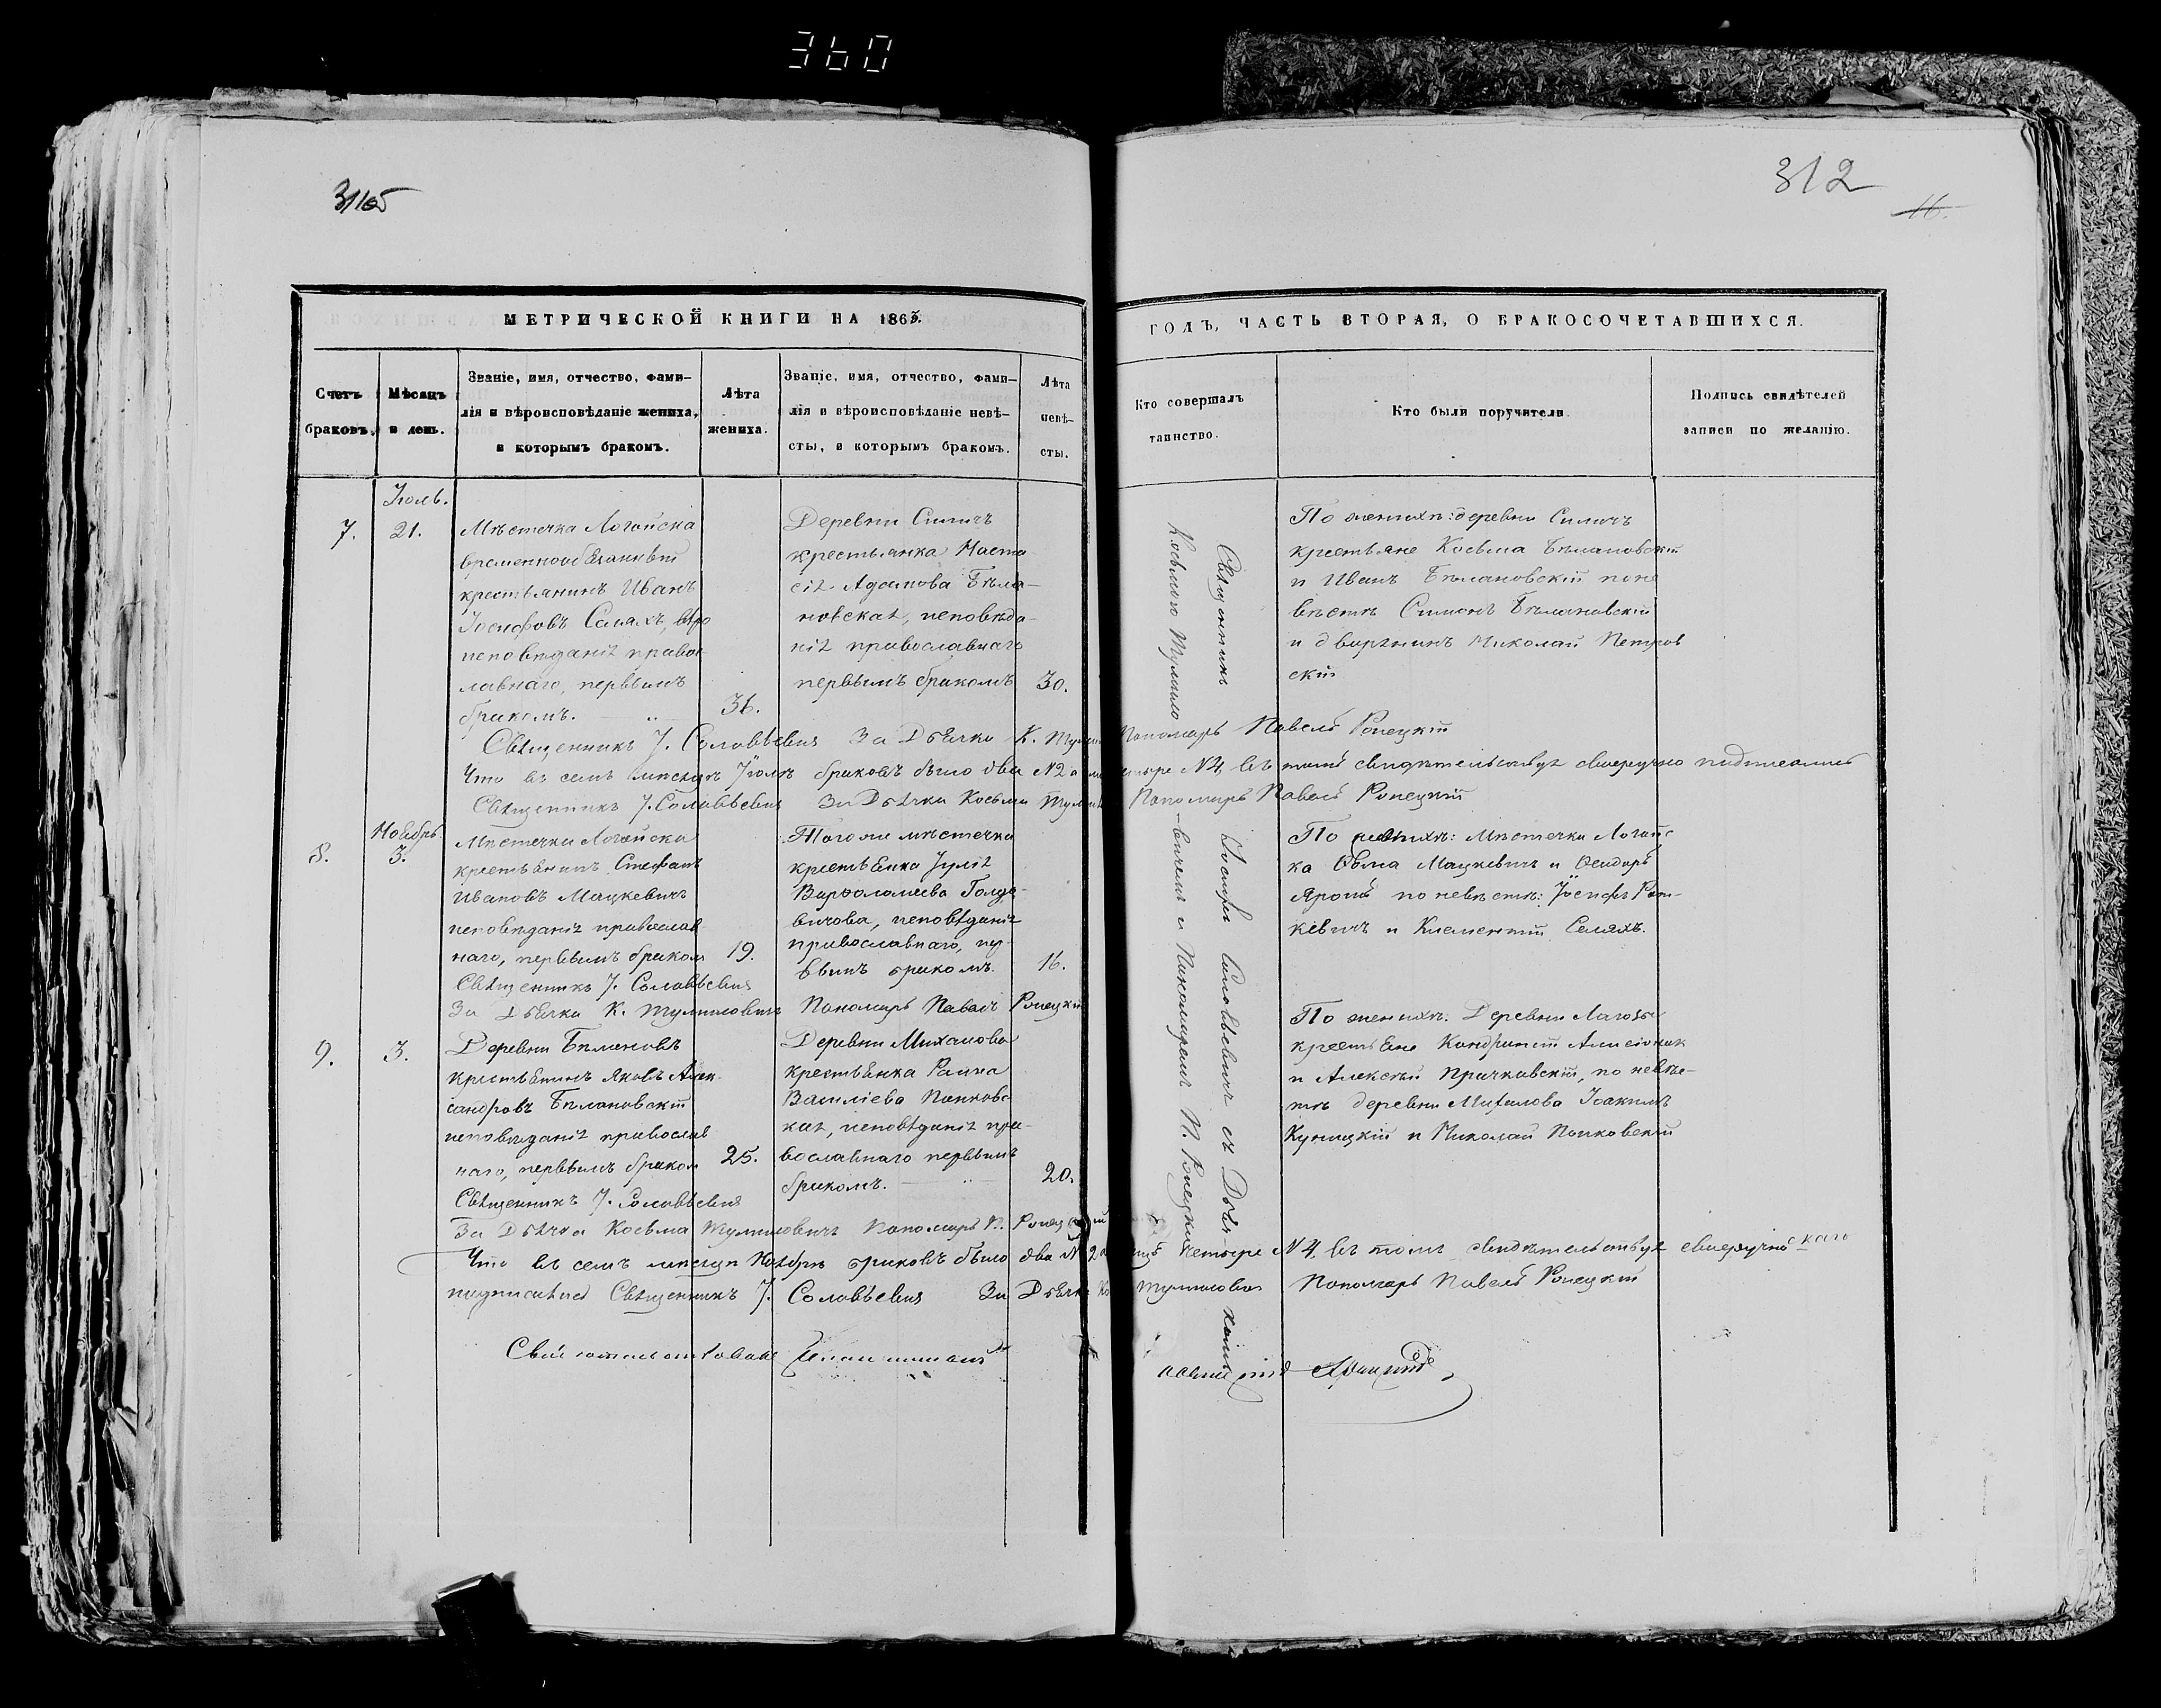 360
312
16.
МЕТРИЧЕСКОЙ КНИГИ НА 1863.
ГОДЪ, ЧАСТЬ ВТОРАЯ, О БРАКОСОЧЕТАВШИХСЯ.
Счетъ браковъ.
Мѣсяцъ и день.
Званіе, имя, отчество, фами-
лія и вѣроисповѣданіе жениха,
и которымъ бракомъ.
Лѣта
жениха.
Званіе, имя, отчество, фами-
лія и вѣроисповѣданіе невѣ-
сты, и которымъ бракомъ.
Лѣта
невѣ-
сты.
Кто совершалъ
таинство.
Кто были поручители.
Подпись свидѣтелей
записи по желанію.
7.
Іюль.
21.
Мѣстечка Логойска
временнообязанный
крестьянинъ Иванъ
Іосифовъ Селяхъ, вѣро
исповѣданія правос
лавнаго, первымъ
бракомъ.
36.
Деревни Силичъ
крестьянка Наста
сія Адамова Бѣла-
новская, исповѣда-
нія православнаго
первымъ бракомъ
30.
По женихѣ: деревни Силичъ
крестьяне Косьма Бѣлановскій
и Иванъ Бѣлановскій по не
вѣстѣ Симонъ Бѣлановскій
и дворянинъ Николай Петров
скій
Священникъ І. Соловьевичъ За Дьячка К. Пономарь Павелъ Ропецкій
Что въ семъ мѣсяцѣ Іюлѣ браковъ было два №2 а №4, въ томъ свидѣтельствуя своеручно подписались
Священникъ І. Соловьевичъ За Дьячка Косьма Пономарь Павелъ Ропецкій
8.
Ноябрь
3.
Мѣстечка Логойска
крестьянинъ Стефанъ
Ивановъ Мацкевичъ
исповѣданія православ
наго, первымъ браком
19.
Того же мѣстечка
крестьянка Юлія
Варфоломеева Голда-
вичова, исповѣданія
православнаго, пер-
вымъ бракомъ.
16.
По женихѣ: Мѣстечка Логойс
ка Ѳома Мацкевичъ и Ѳеодоръ
Яромъ по невѣстѣ: Іосифъ Рат-
кевичъ и Климентій Селяхъ.
Священникъ І. Соловьевичъ
За Дьячка К. Тумиловичъ Пономарь Павелъ Ропецкій
9.
3.
Деревни Бѣлановъ
крестьянинъ Яковъ Алек-
сандровъ Бѣлановскій
исповѣданія православ
наго, первымъ браком
25.
Деревни Михалова
крестьянка Раина
Василіева Папковс
кая, исповѣданія пра-
вославнаго первымъ
бракомъ.
20.
По женихѣ: Деревни Лагозы
крестьяне Кондратій
и Алексѣй Прачковскій, по невѣс-
тѣ деревни Михалова Іоакимъ
Куницкій и Николай Папковскій
Священникъ І. Соловьевичъ
За Дьячка Косьма Тумиловичъ Пономарь П. Ропецкій
Что въ семъ мѣсяцѣ Ноябрѣ браковъ было два №2 четыре №4, въ томъ свидѣтельствуя своеручно
подписались Священникъ І. Соловьевичъ За Дьячка Тумиловичъ Пономарь Павелъ Ропецкій
Священникъ Іосифъ Соловьевичъ съ Дьяч
Косьмою Тумило-вичемъ и Пономаремъ П. Ропецкимъ